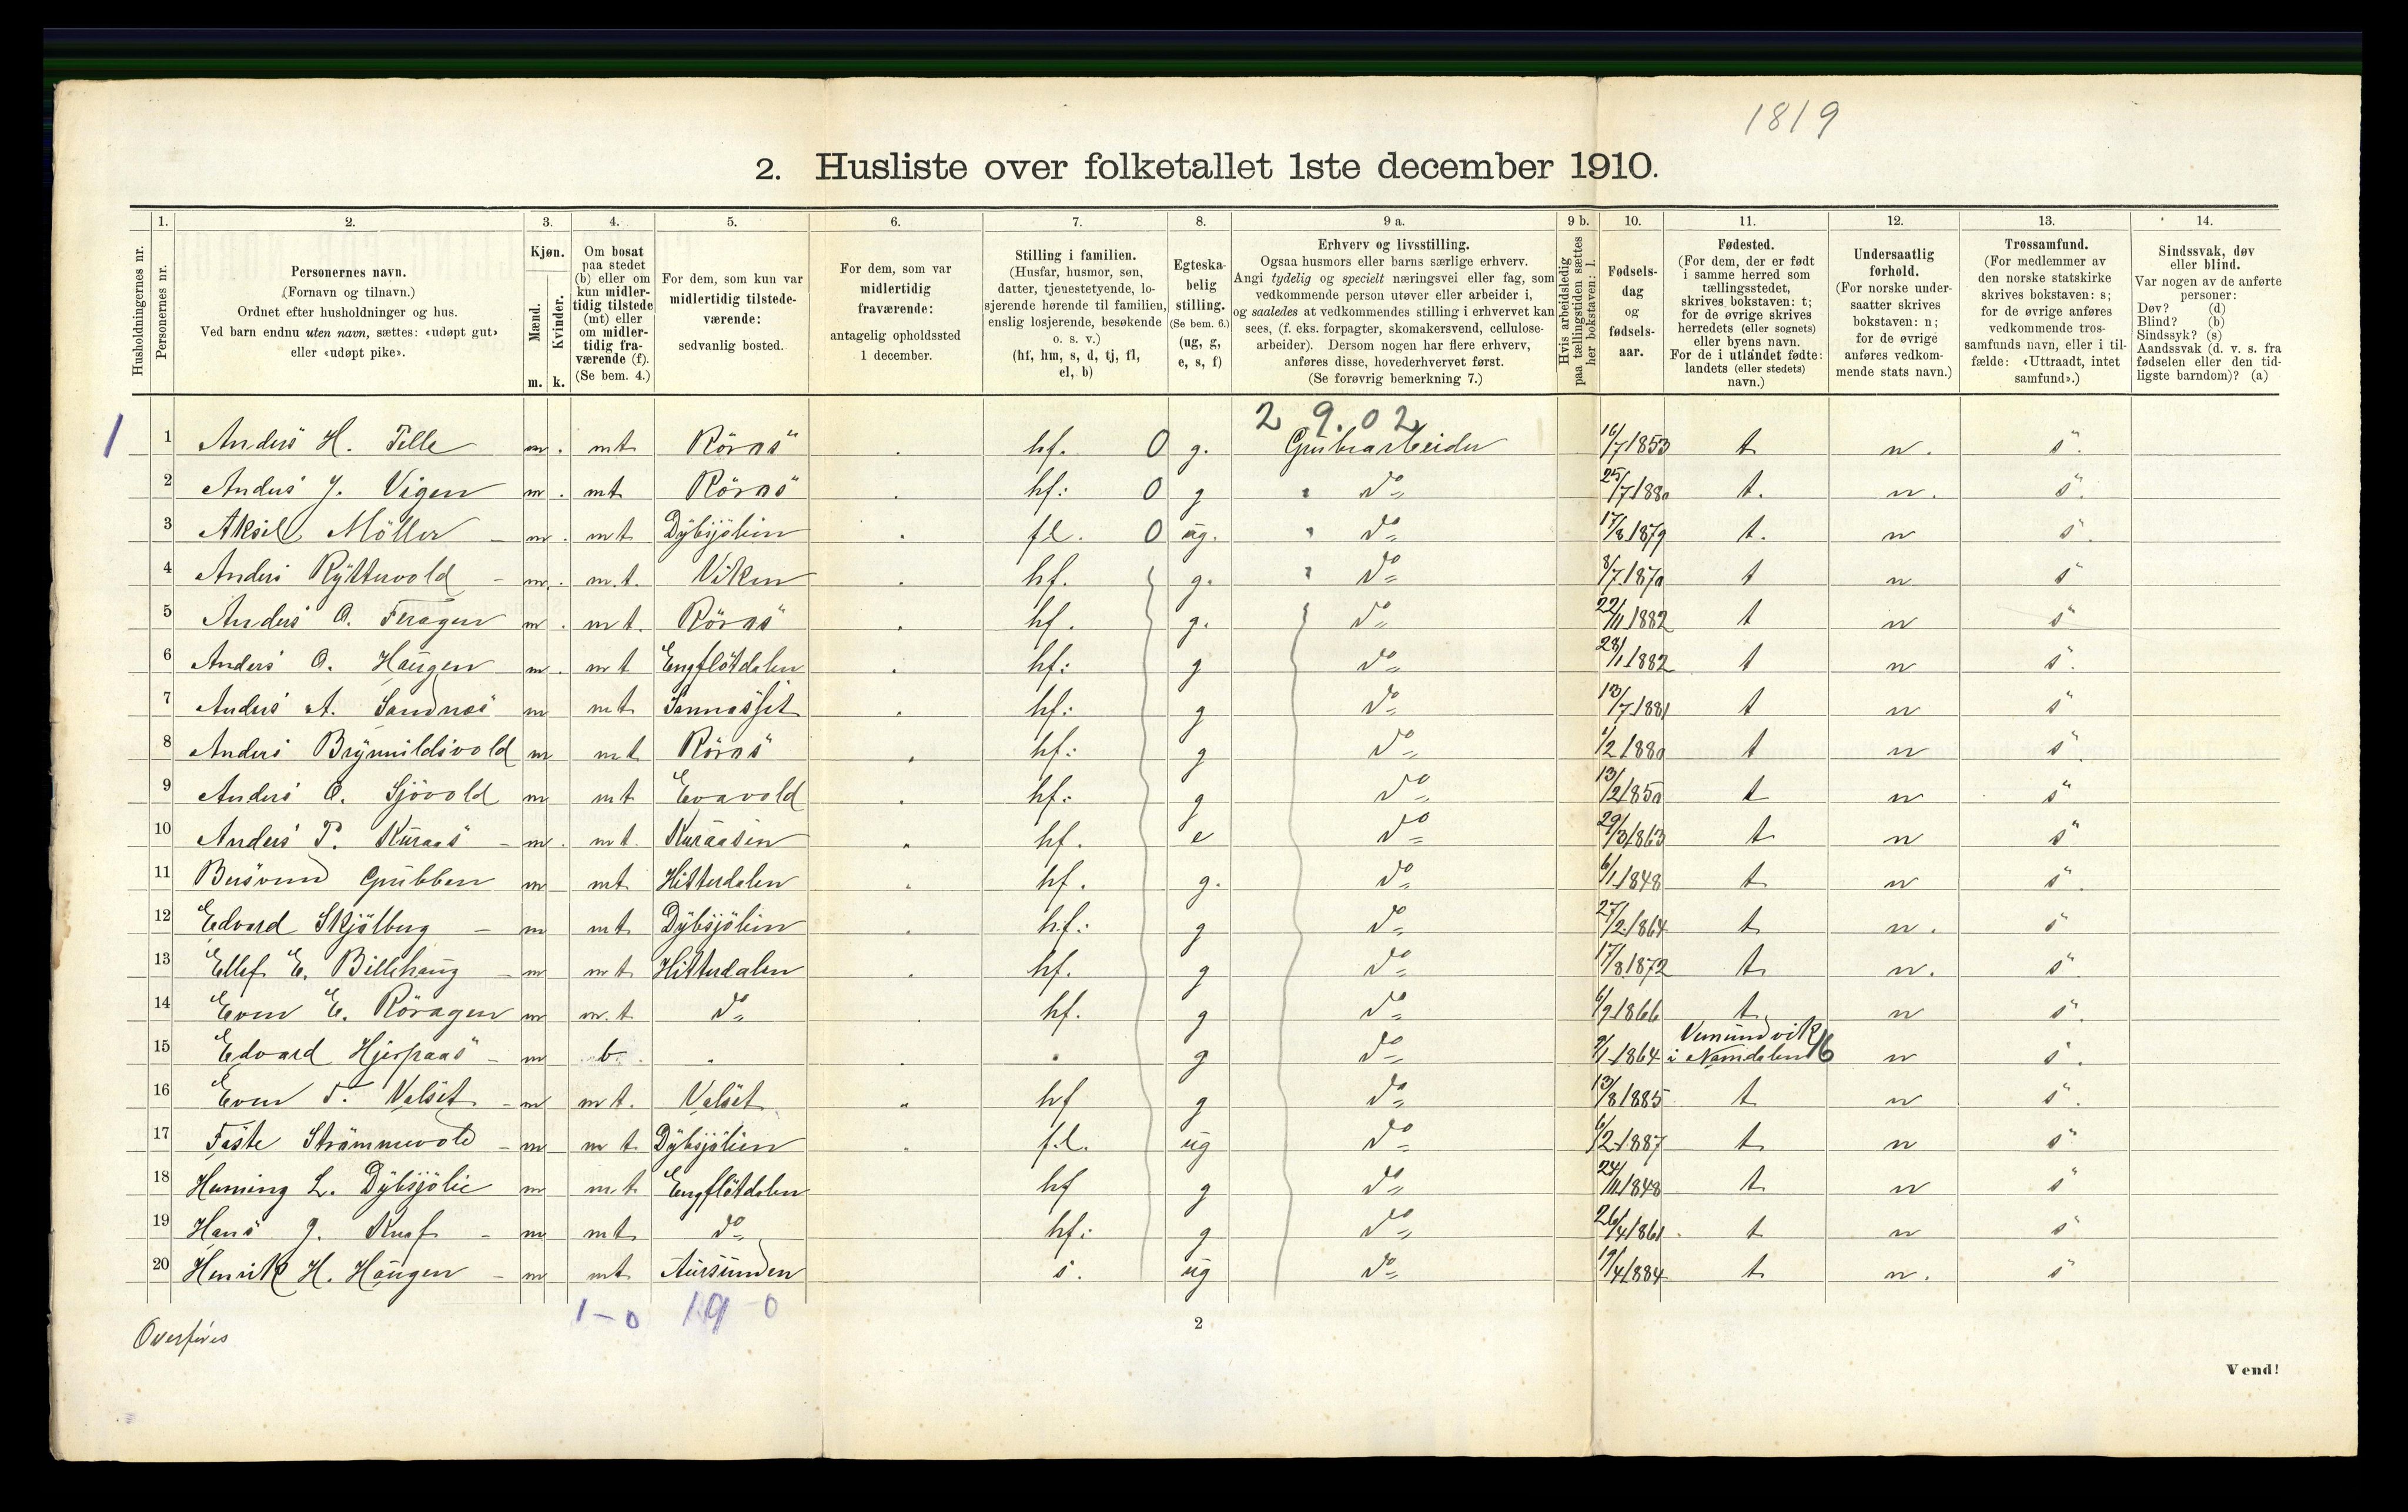 1819
2. Husliste over folketallet 1ste december 1910.
1. 2. 3. 4. 5. 6. 7. 8. 9 a. 9 b. 10. 11. 12. 13. 14.
Husholdningernes nr.
Personernes nr.
Personernes navn.
(Fornavn og tilnavn.)
Ordnet efter husholdninger og hus.
Ved barn endnu uten navn, sættes: «udøpt gut»
eller «udøpt pike».
Kjøn.
Mænd.
Kvinder.
m. k.
Om bosat
paa stedet
(b) eller om
kun midler-
tidig tilstede
(mt) eller
om midler-
tidig fra-
værende (f).
(Se bem. 4.)
For dem, som kun var
midlertidig tilstede-
værende:
sedvanlig bosted.
For dem, som var
midlertidig
fraværende:
antagelig opholdssted
1 december.
Stilling i familien.
(Husfar, husmor, søn,
datter, tjenestetyende, lo-
sjerende hørende til familien,
enslig losjerende, besøkende
o. s. v.)
(hf, hm, s, d, tj, fl,
el, b)
Egteska-
belig
stilling.
(Se bem. 6.)
(ug, g,
e, s, f)
Erhverv og livsstilling.
Ogsaa husmors eller barns særlige erhverv.
Angi tydelig og specielt næringsvei eller fag, som
vedkommende person utøver eller arbeider i,
og saaledes at vedkommendes stilling i erhvervet kan
sees, (f. eks. forpagter, skomakersvend, cellulose-
arbeider). Dersom nogen har flere erhverv,
anføres disse, hovederhvervet først.
(Se forøvrig bemerkning 7.)
Hvis arbeidsledig
paa tællingstiden sættes
her bokstaven: l.
Fødsels-
dag
og
fødsels-
aar.
Fødested.
(For dem, der er født
i samme herred som
tællingsstedet,
skrives bokstaven: t;
for de øvrige skrives
herredets (eller sognets)
eller byens navn.
For de i utlandet fødte:
landets (eller stedets)
navn.)
Undersaatlig
forhold.
(For norske under-
saatter skrives
bokstaven: n;
for de øvrige
anføres vedkom-
mende stats navn.)
Trossamfund.
(For medlemmer av
den norske statskirke
skrives bokstaven: s;
for de øvrige anføres
vedkommende tros-
samfunds navn, eller i til-
fælde: «Uttraadt, intet
samfund».)
Sindssvak, døv
eller blind.
Var nogen av de anførte
personer:
Døv? (d)
Blind? (b)
Sindssyk? (s)
Aandssvak (d. v. s. fra
fødselen eller den tid-
ligste barndom)? (a)
2 9.02
1 1 Anders H. Tille m. mt Röros hf. 0 g. Grubearbeider 16/7 1853 t n. s.
2 Anders J. Vigen m. mt Röros hf: 0 g do 25/7 1880 t. n. s.
3 Aksel Möller m. mt Dybsjölien fl. 0 ug. do 17/8 1879 t. n s.
4 Anders Ryttervold m. m.t. Viken hf. g. do 8/7 1870 t n s
5 Anders O. Feragen m. mt. Röros hf. g. do 22/11 1882 t n s
6 Anders O. Haugen m. mt Engflötdalen hf: g do 28/1 1882 t n s.
7 Anders A. Sandnes m mt hf: g do 13/7 1881 t n s
8 Anders Brynnildsvold m mt Röros hf: g do 1/2 1880 t n s
9 Anders O. Sjövold m mt Evavold hf: g do 13/2 1850 t n s
10 Anders P. Kuraas m. mt. Kuraasen hf. e do 29/3 1863 t n s
11 Bersvend Grubben m mt Hitterdalen hf. g. do 6/1 1848 t n s.
12 Edvard Skjölberg m mt Dybsjölien hf: g do 27/2 1864 t n. s
13 Ellef E. Billehaug m mt Hitterdalen hf. g do 17/8 1872 t n. s.
14 Even E. Röragen m m.t do hf. g do 6/9 1866 t n s.
15 Edvard Hjerpaas m b g do 9/1 1864 Vemundvik i Namdalen 16 n s.
16 Even T. Valset m mt. Valset hf g do 13/8 1885 t n s.
17 Faste Strömmevold m mt Dybsjölien f.l. ug do 6/2 1887 t n s
18 Henning L. Dybsjölie m mt Engflötdalen hf g do 24/11 1848 t n s
19 Hans J. Ruaf m mt do hf: g do 26/4 1861 t n s
20 Henrik H. Haugen m mt Aursunden s. ug do 19/4 1884 t n. s
1-0 19 0
Overføres
2
Vend!